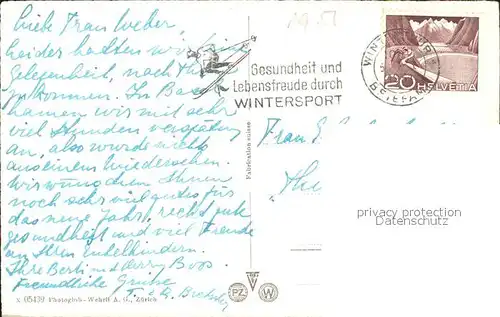 Liebe Frau Weber
leider hatten wir keine
gelegenheit, nach Thu
zukommen. In Basel
kamen wir mit sehr
viel Stunden verspätung
an, also wurde nichts
aus einem wiedersehen.
Wir wünschen Ihnen
noch sehr viel gutes für
das neue Jahr, recht gute
gesundheit und viel Freude
an Ihren Enkelkindern.
Ihre Berti und Harry Boos.
Freundliche Grüsse
X 05439 Photoglob-Wehrli A. G., Zürich
Fabrication suisse
PZ W
1951
Gesundheit und
Lebensfreude durch
WINTERSPORT
WINTERTHUR
BRIEFA
20 HELVETIA
Frau E.
Thu
privacy protection
Datenschutz